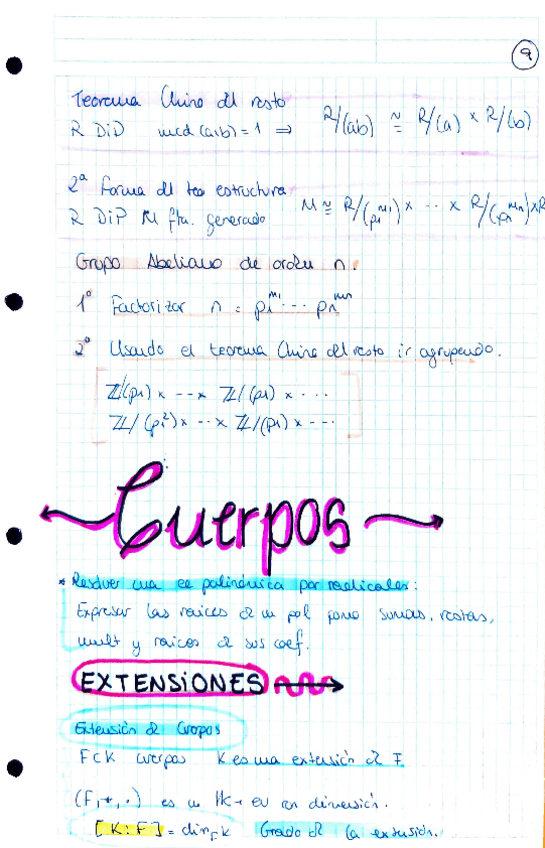 9
Teorema Chino del resto
R DiD mcd (a,b) = 1 ⇒ R/(ab) ≅ R/(a) × R/(b)
2ª Forma del teo estructura
R DiP M fta. generado M ≅ R/(p1^m1) × ... × R/(pn^mn) × R
Grupo Abeliano de orden n.
1º Factorizar n = p1^m1 ... pn^mn
2º Usando el teorema Chino del resto ir agrupando.
ℤ/(p1) × --- × ℤ/(p1) × ...
ℤ/(p1²) × -- × ℤ/(p1) × ---
Cuerpos
* Resolver una ec polinómica por radicales:
Expresar las raices de un pol como sumas, restas,
mult y raices de sus coef.
EXTENSiONES
Extensión de Cuerpos
F⊂K cuerpos K es una extensión de F
(F,+,·) es un K- ev con dimensión.
[K:F] = dim_F K Grado de la extensión.